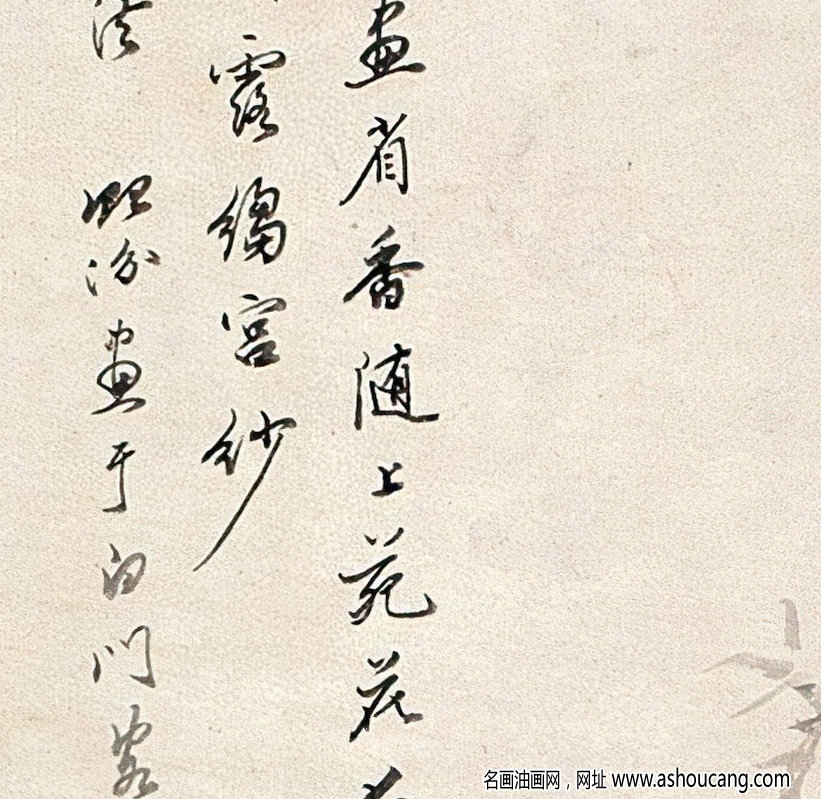 画省香随上苑花
露绉宫纱
法 熙汾画于白门客
名画油画网，网址 www.ashoucang.com